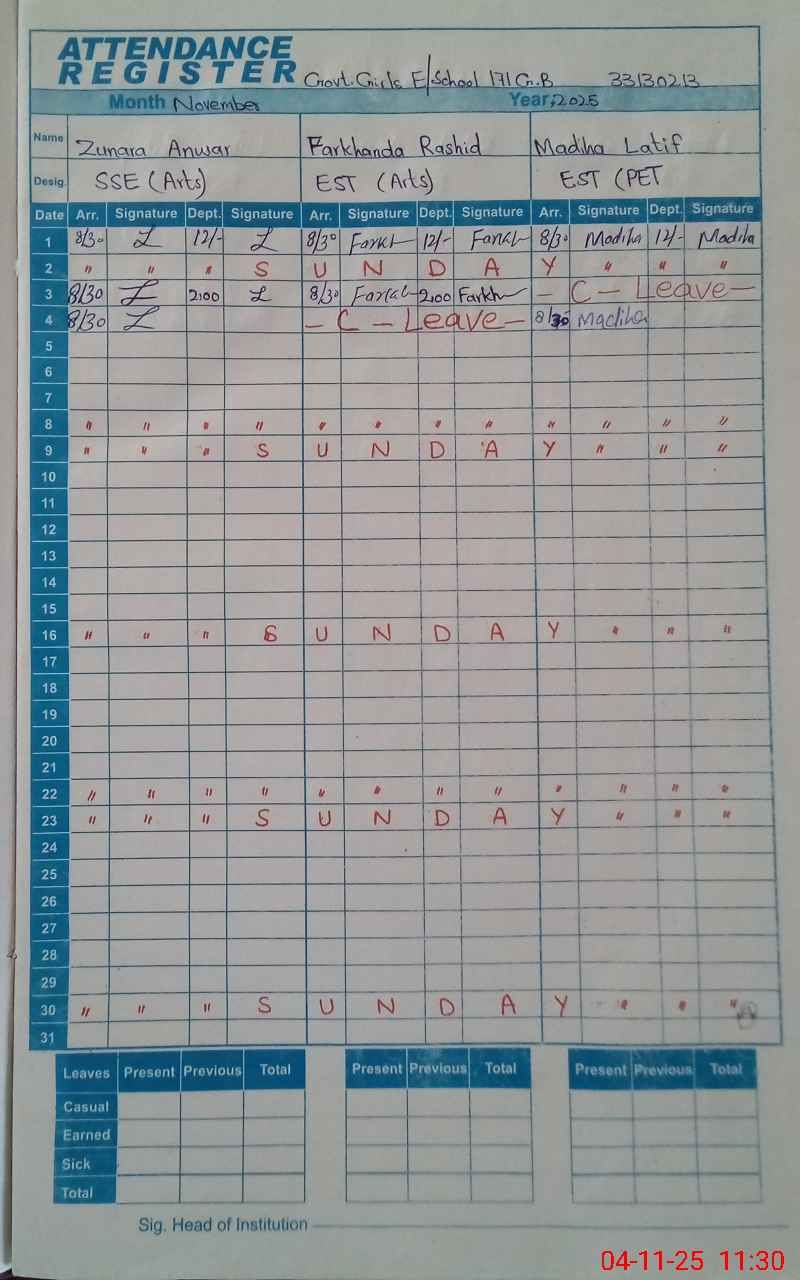 ATTENDANCE
REGISTER Govt. Girls E/School 171 G.B 33130213
Month November Year, 2025
Name Zunara Anwar Farkhanda Rashid Madiha Latif
Desig. SSE (Arts) EST (Arts) EST (PET
Date Arr. Signature Dept. Signature Arr. Signature Dept. Signature Arr. Signature Dept. Signature
1 8/30 12/- 8/30 Farkh 12/- Farkh 8/30 Madiha 12/- Madiha
2 " " " S U N D A Y " " "
3 8/30 2:00 8/30 Farkh 2:00 Farkh – C – Leave –
4 8/30 – C – Leave – 8/30 Madiha
5
6
7
8 " " " " " " " " " " " "
9 " " " S U N D A Y " " "
10
11
12
13
14
15
16 " " " S U N D A Y " " "
17
18
19
20
21
22 " " " " " " " " " " " "
23 " " " S U N D A Y " " "
24
25
26
27
28
29
30 " " " S U N D A Y " " "
31
Leaves Present Previous Total Present Previous Total Present Previous Total
Casual
Earned
Sick
Total
Sig. Head of Institution
04-11-25 11:30